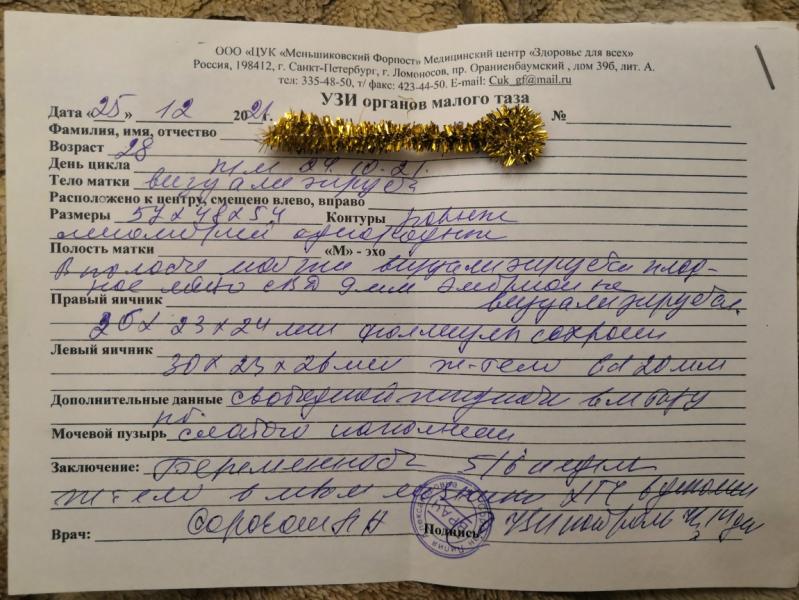 ООО «ЦУК «Меньшиковский Форпост» Медицинский центр «Здоровье для всех»
Россия, 198412, г. Санкт-Петербург, г. Ломоносов, пр. Ораниенбаумский , дом 39б, лит. А.
тел: 335-48-50, т/ факс: 423-44-50. E-mail: Cuk_gf@mail.ru
УЗИ органов малого таза
Дата «25» 12 2021г. №
Фамилия, имя, отчество
Возраст 28
День цикла 10.21.
Тело матки визуализируется
Расположено к центру, смещено влево, вправо
Размеры 57х48х54 Контуры ровные
миометрий однородный
Полость матки «М» - эхо
В полости матки визуализируется плод-
ное яйцо СВД 9 мм эмбрион не
Правый яичник визуализируется.
26х23х24 мм фолликулы сохрани
Левый яичник
30х23х26 мм ж-тело d 20 мм
Дополнительные данные свободной жидкости в м/тазу
нет
Мочевой пузырь слабого наполнения
Заключение: Беременность 5/6 недель
ж-тело в левом яичнике ХГЧ в динамике
Врач: Подпись: УЗИ контроль ч/з